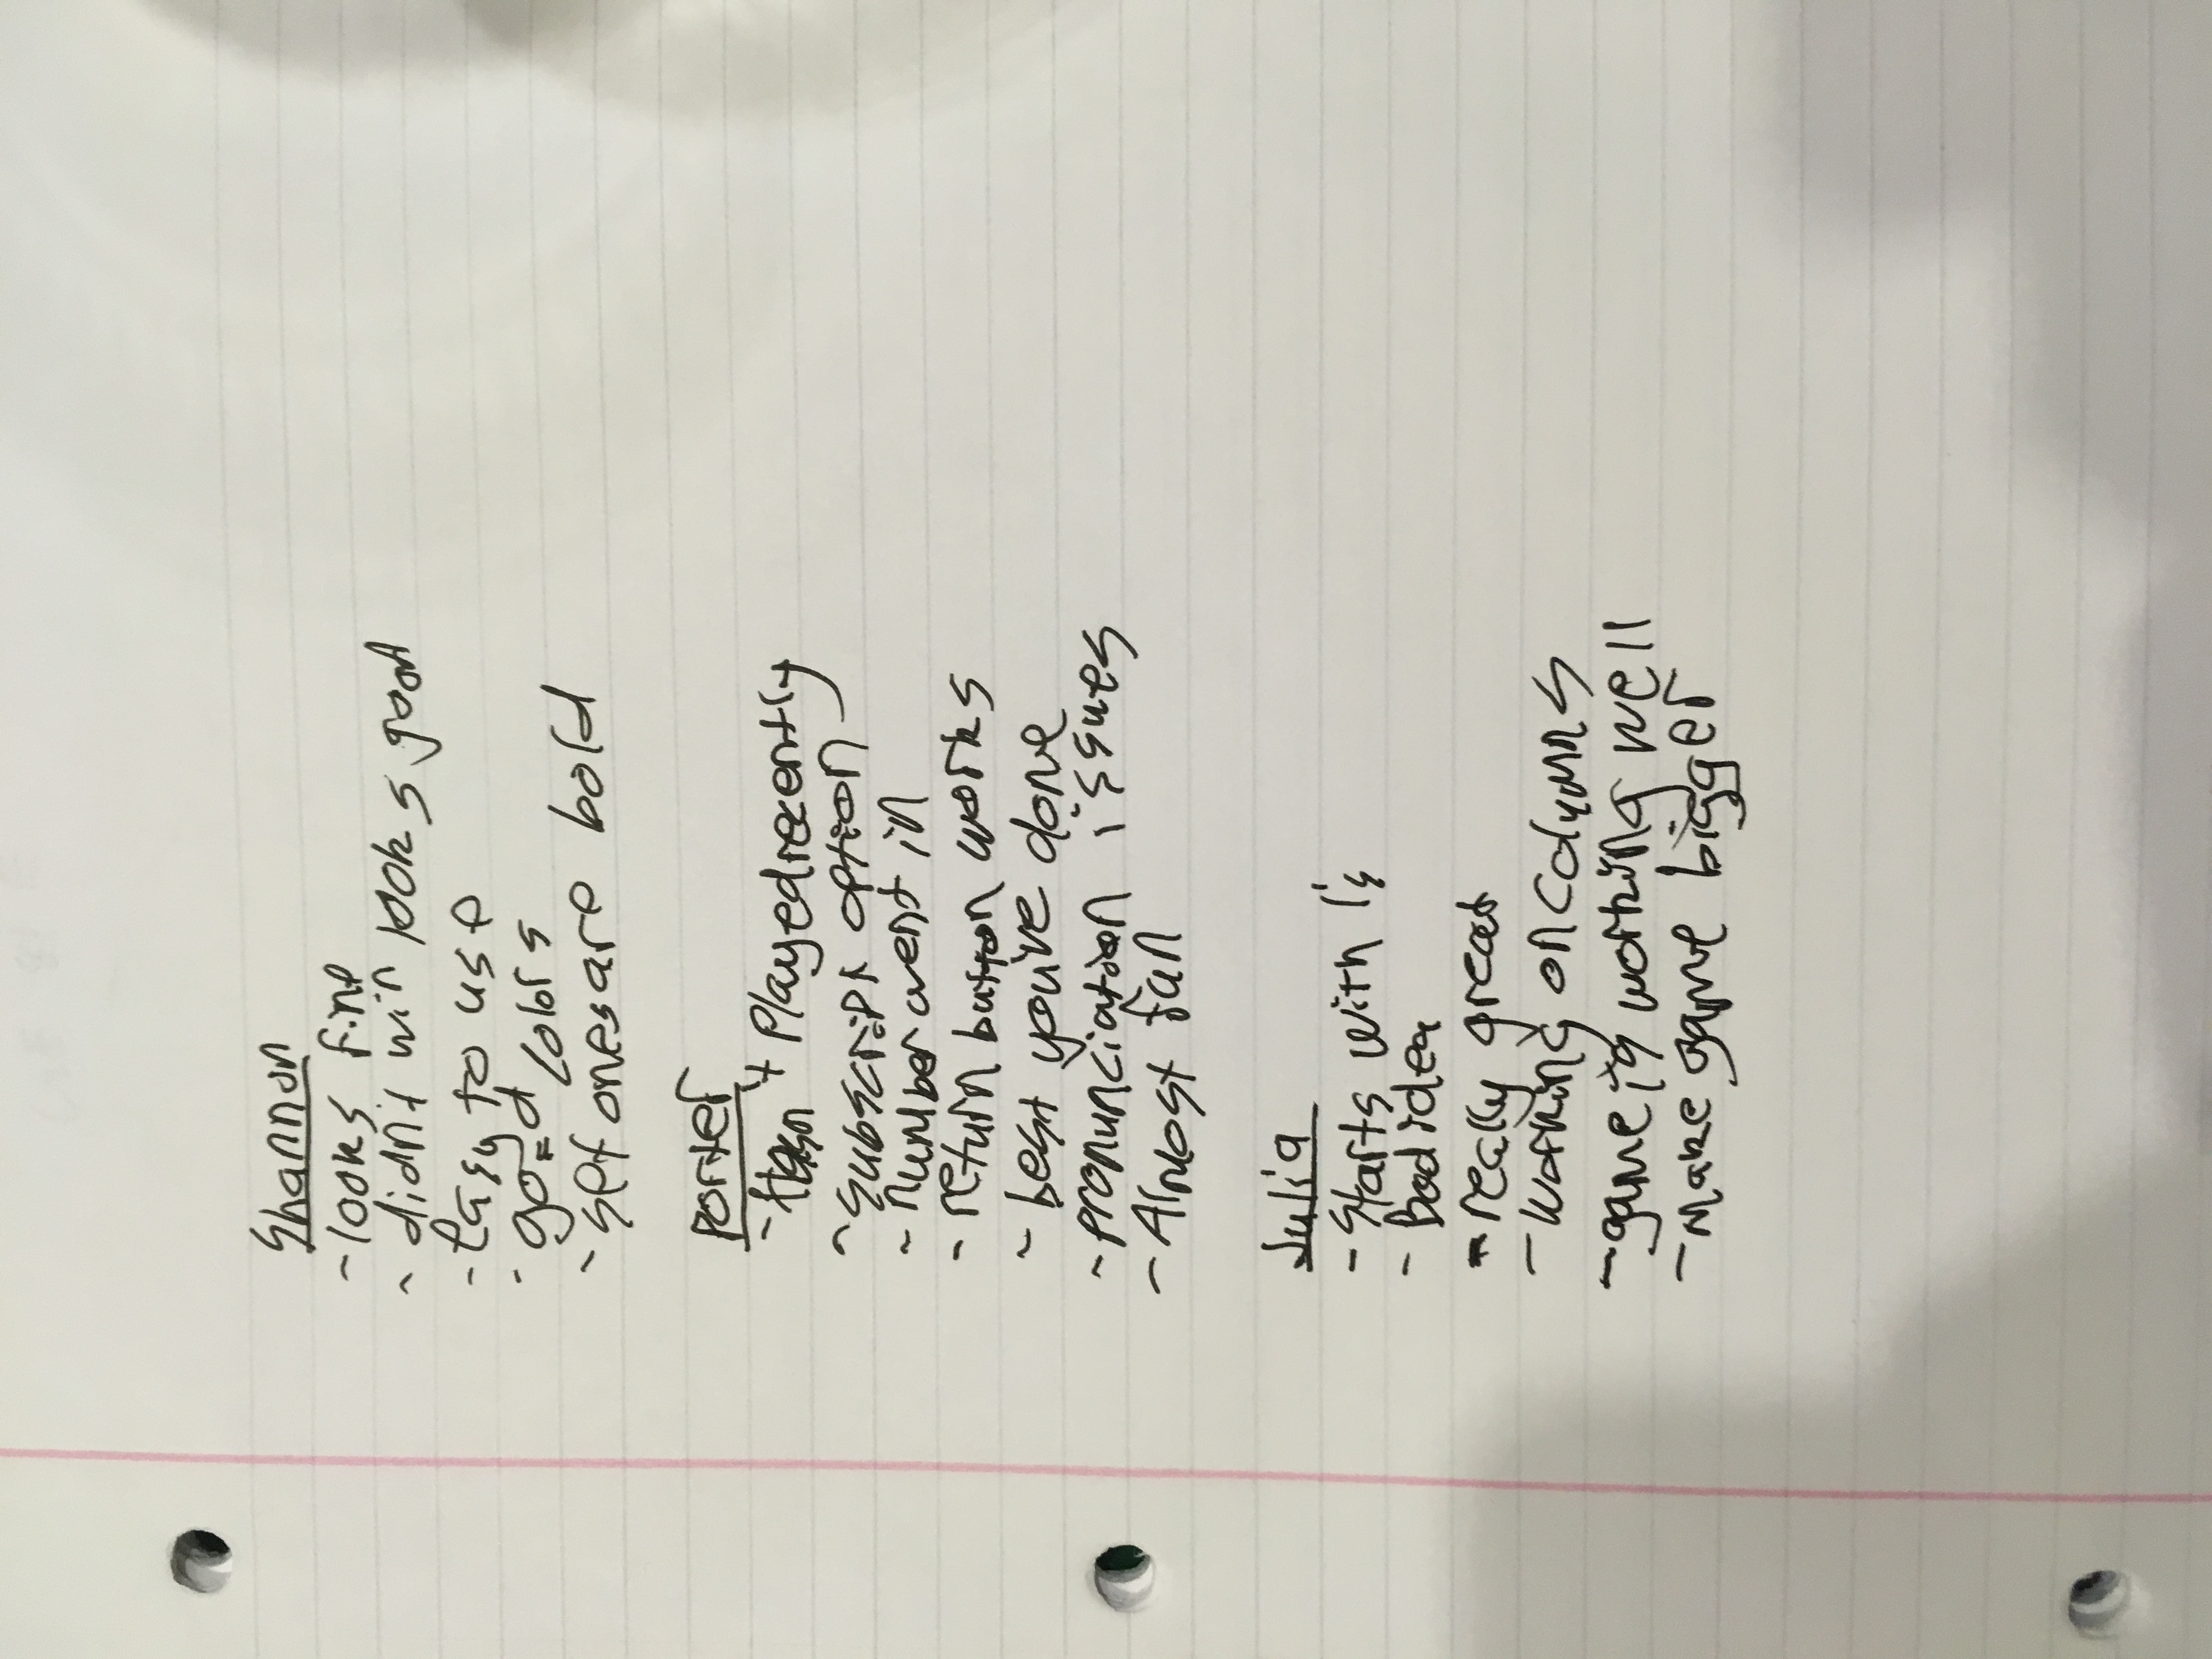 Shannon
- looks fine
- didn't win looks good
- easy to use
- good colors
- set ones are bold
Porter
- Hasn't Played recently
- subscript option
- number went in
- return button works
- best you've done
- pronunciation issues
- Almost fun
Julia
- Starts with 1's
- Bad idea
- really great
- working on columns
- game is working well
- make game bigger